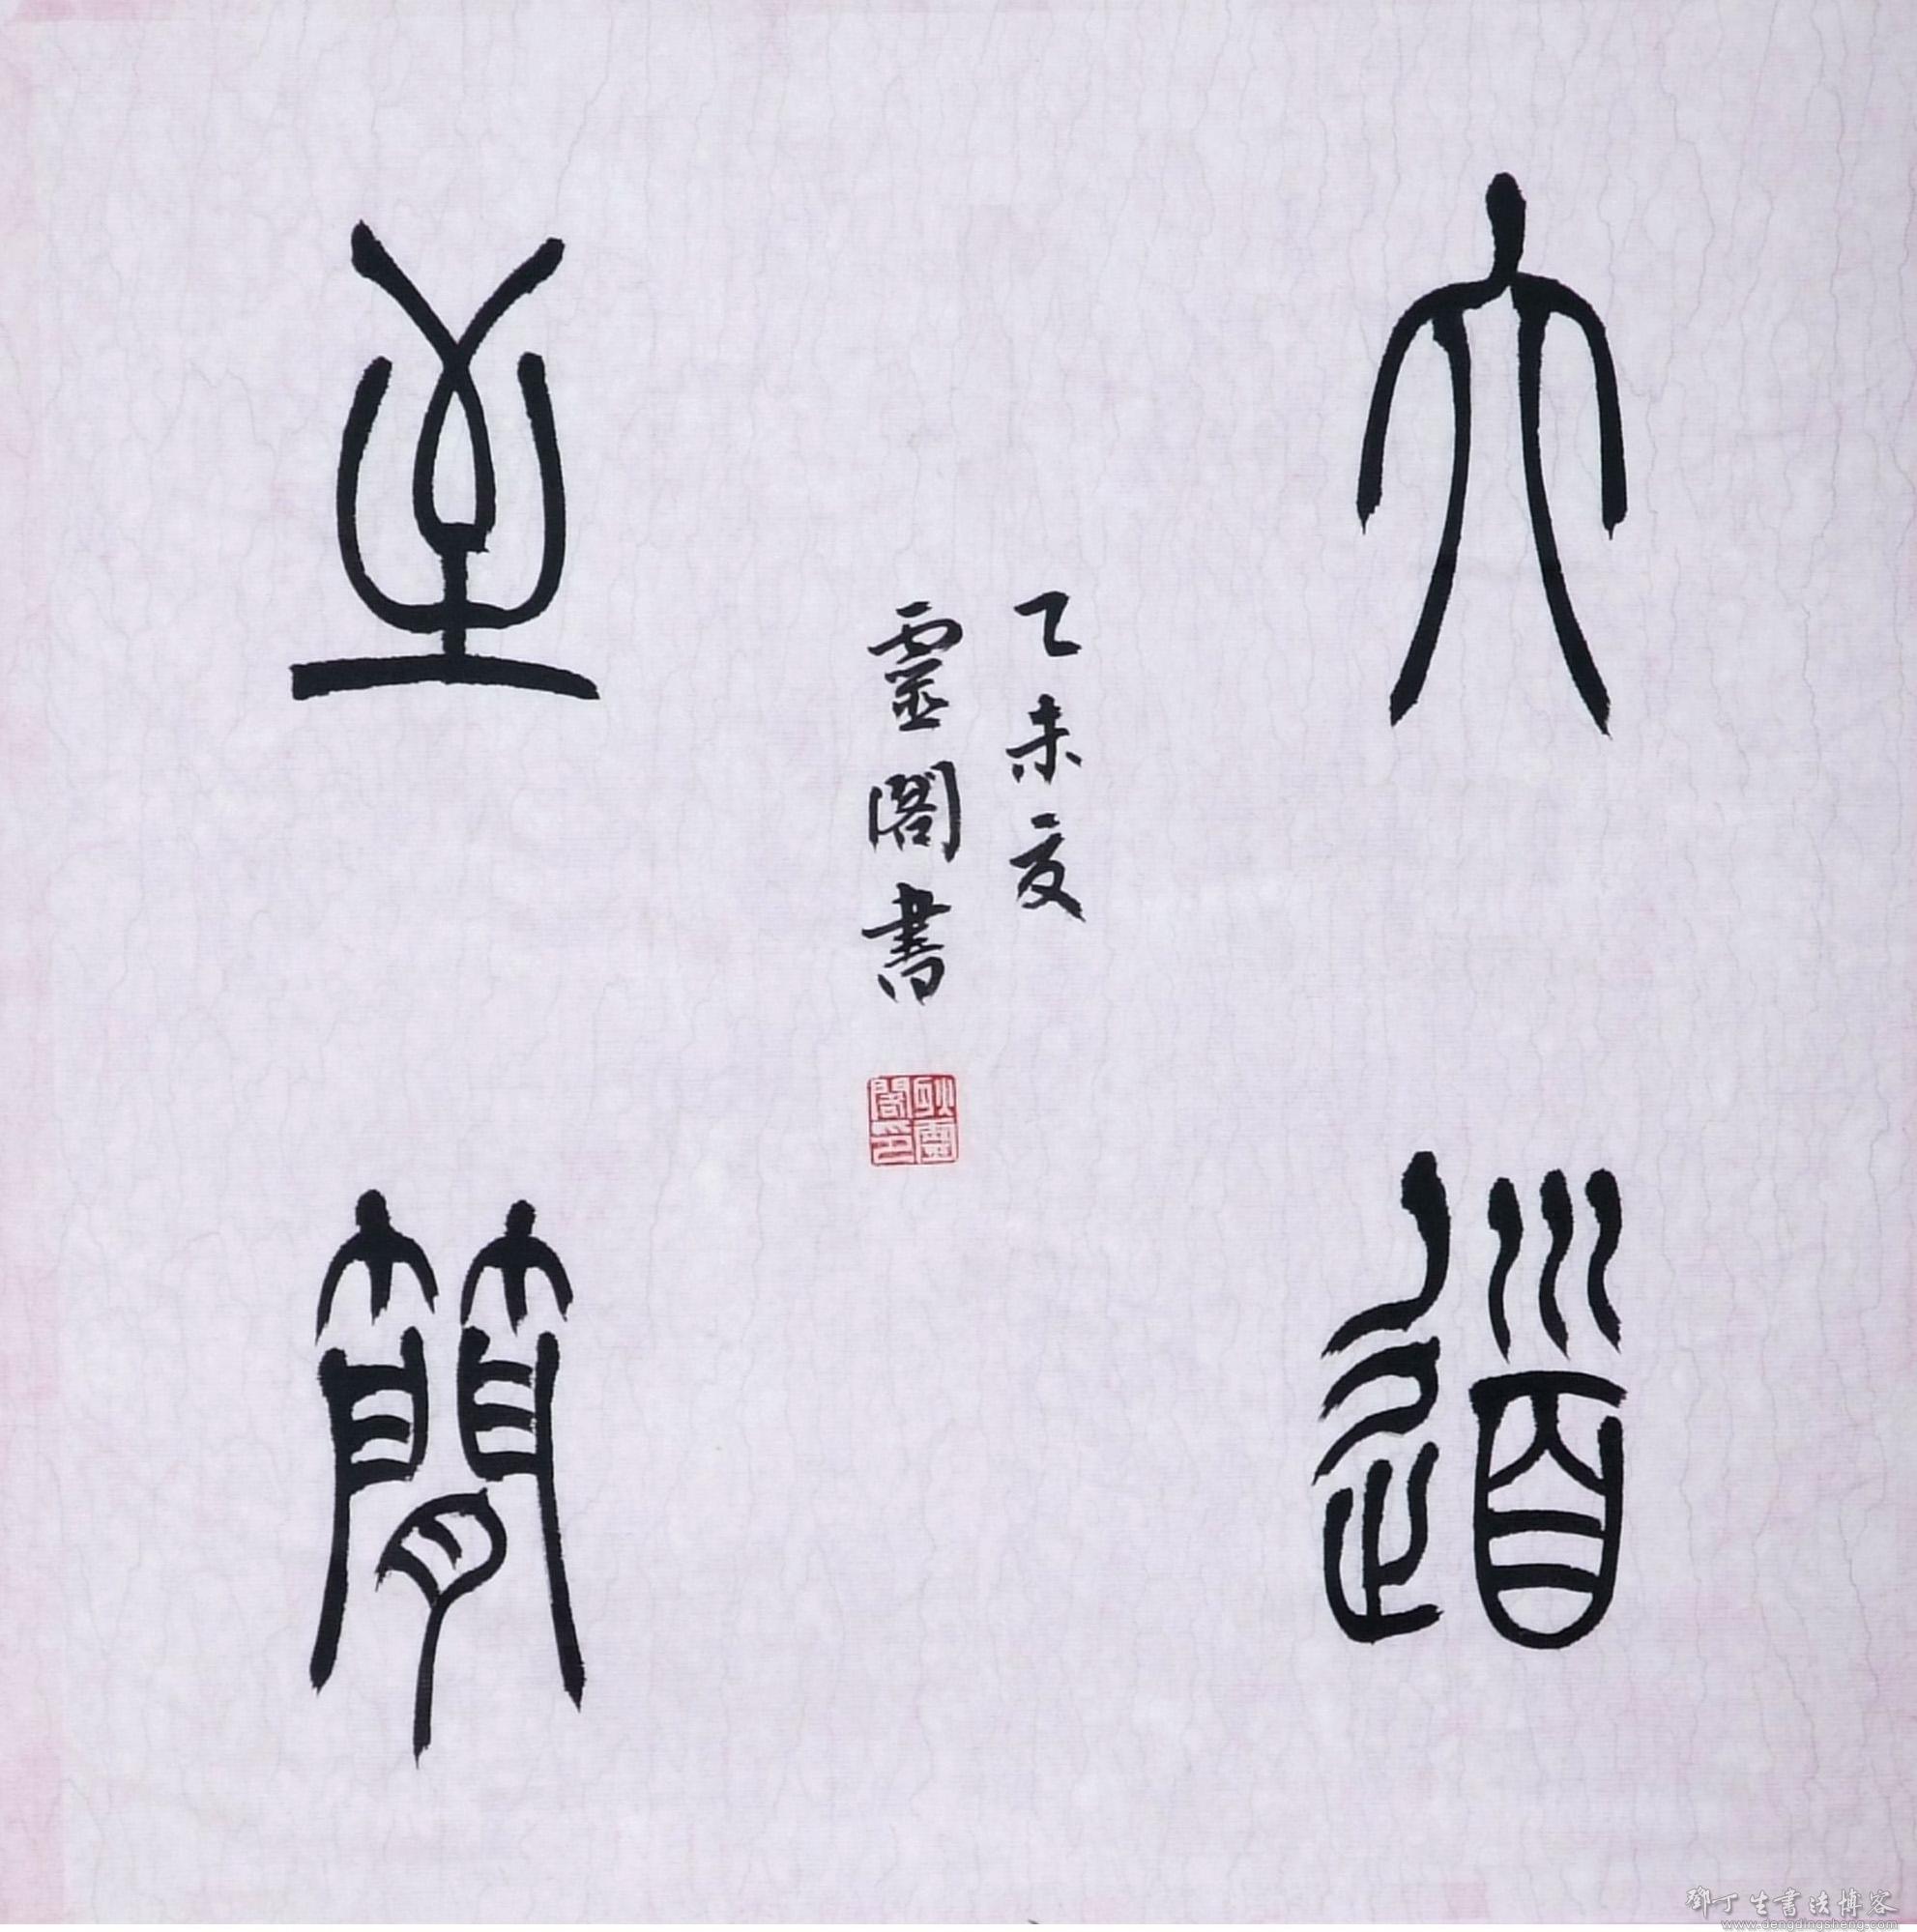 大道
至簡
乙未夏
靈閣書
耿靈
閣印
鄧丁生書法博客
www.dengdingsheng.com